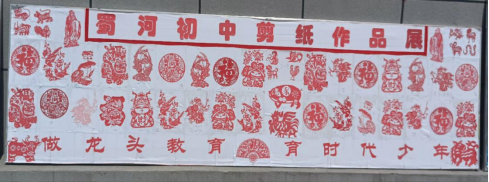 蜀河初中剪纸作品展
做龙头教育 育时代少年